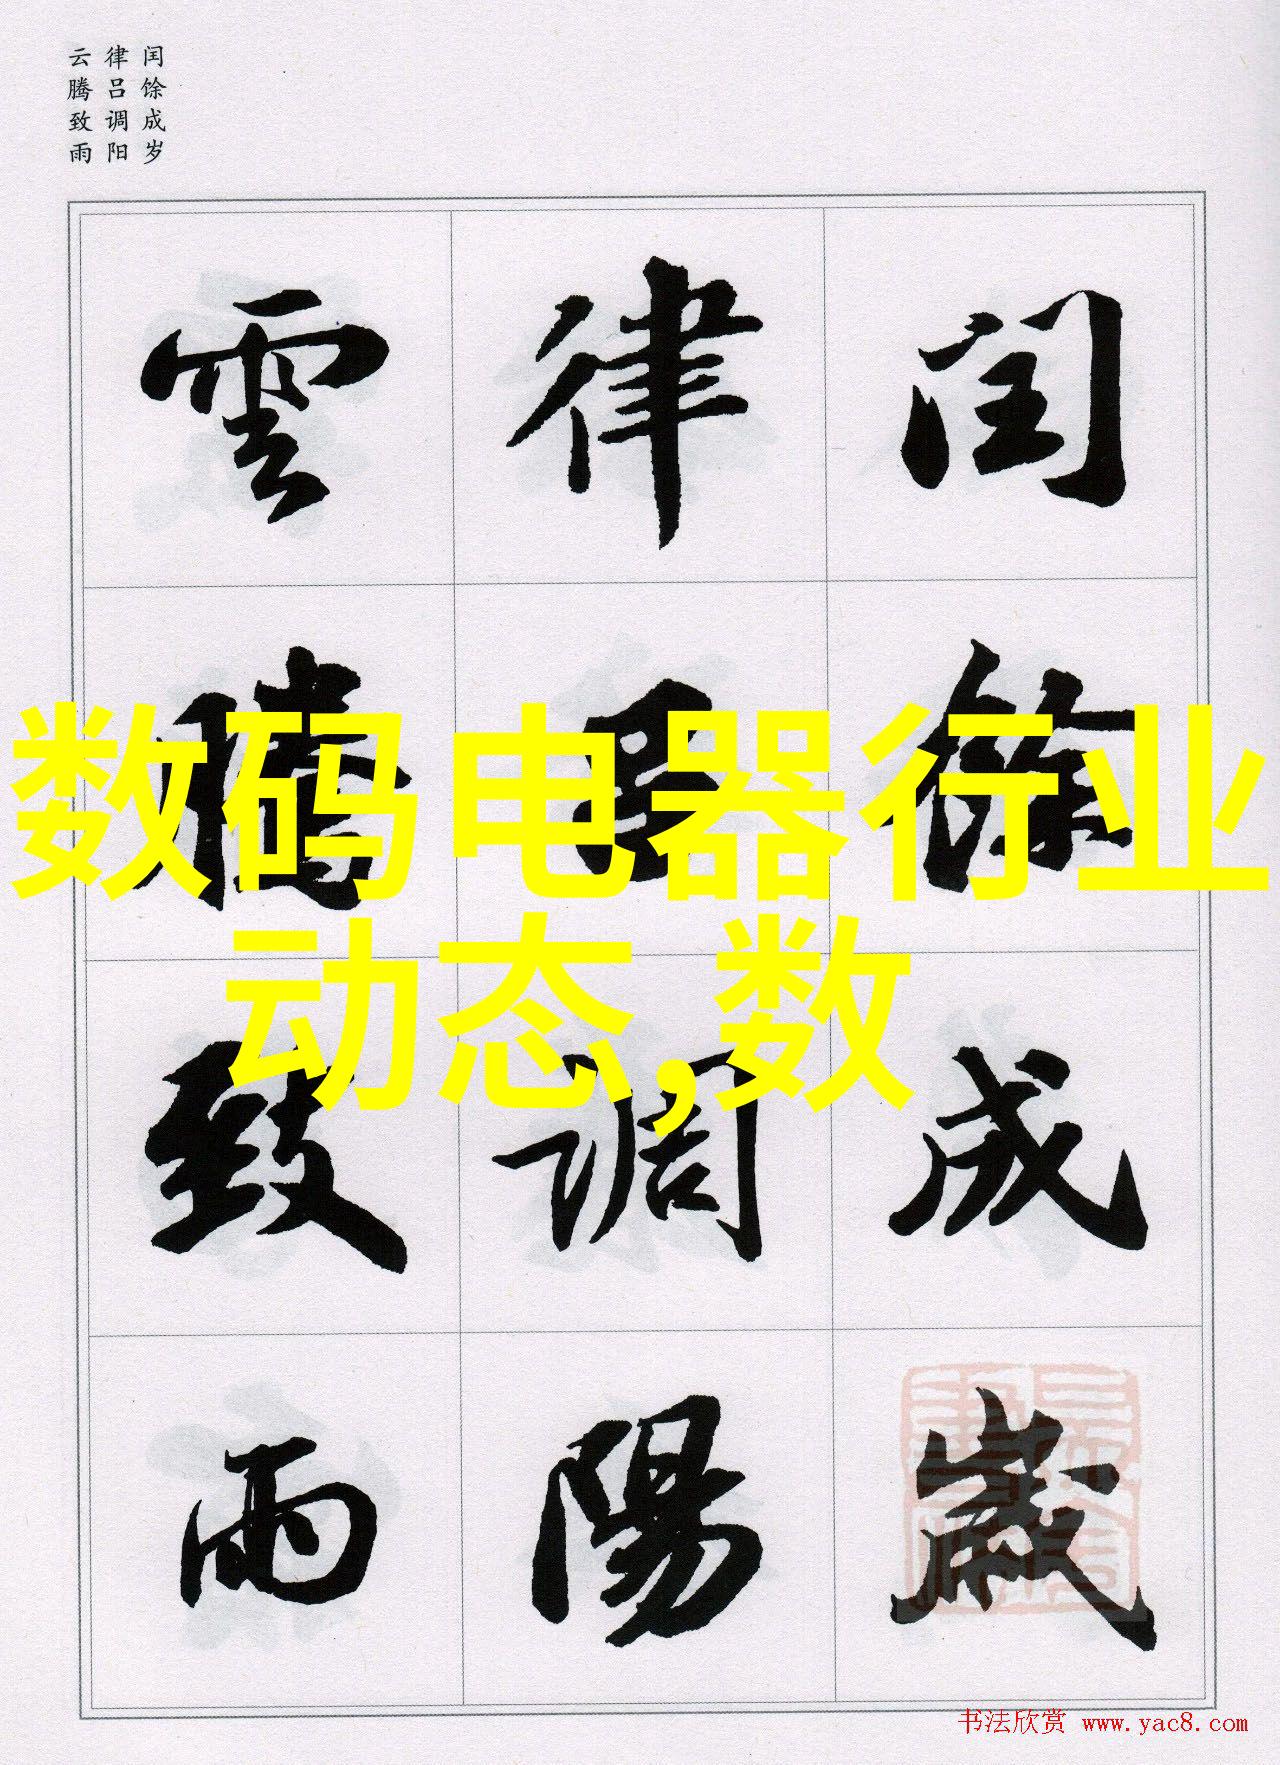 闰馀成岁
律吕调阳
云腾致雨
闰馀成歲
律吕調陽
雲騰致雨
数码电器行业
动态,数
书法欣赏 www.yac8.com